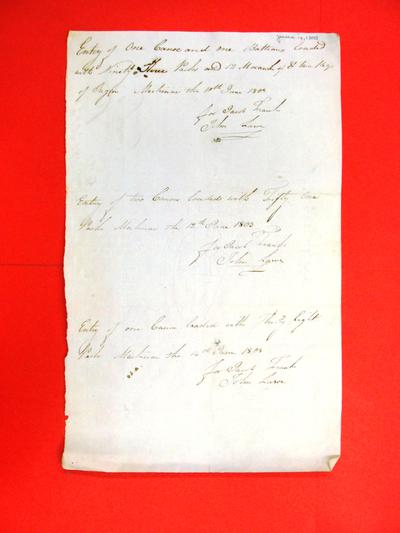 Entry of One Canoe and one Batteau loaded
with Ninety Three Packs and 12 Mocauks &
of Sugar Mackinac the 10th June 1803
for Jacob Frank
John Lawe
Entry of two Canoes loaded with Fifty One
Packs Mackinac the 12th June 1803
for Jacob Franks
John Lawe
Entry of one Canoe loaded with Thirty Eight
Packs Mackinac the 14th June 1803
for Jacob Frank
John Lawe